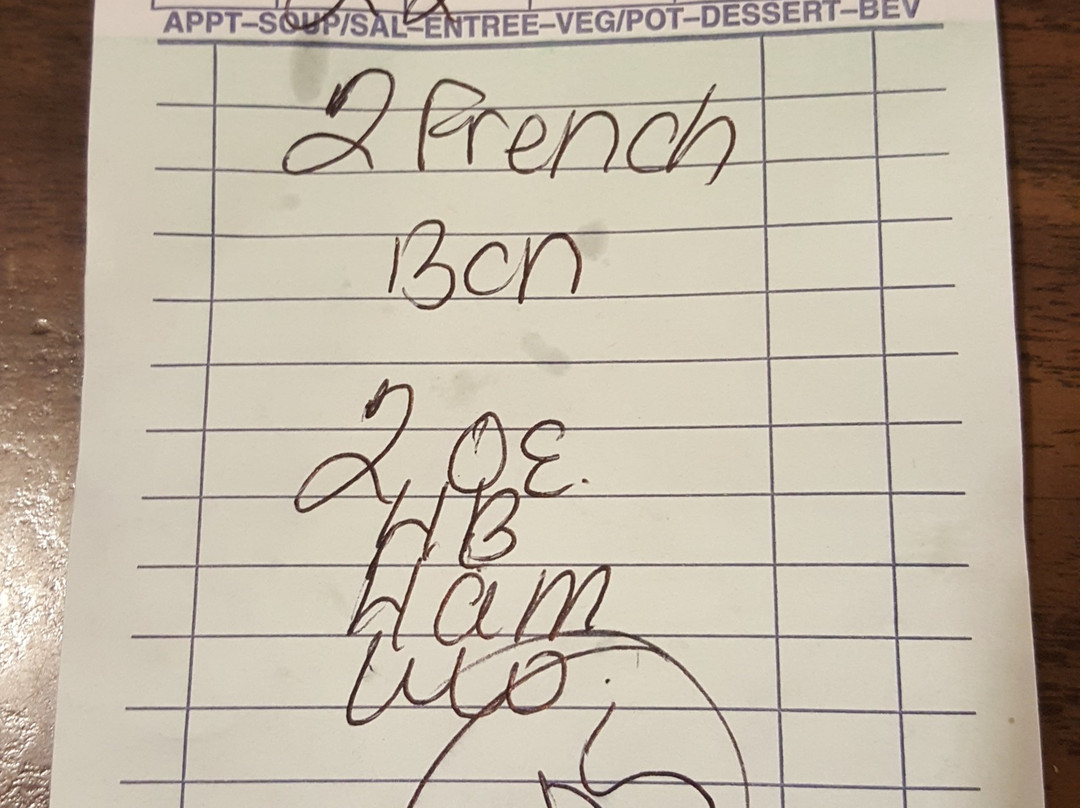 APPT–SOUP/SAL–ENTREE–VEG/POT–DESSERT–BEV
2 French
Bcn
2 OE.
HB
Ham